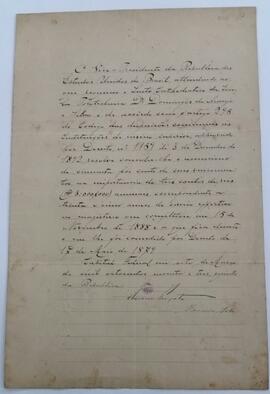 O Vice-Presidente da Republica dos
Estados Unidos do Brazil, attendendo ao
que requereu o Lente Cathedratico da
Polytechnica Dr Domingos de Araujo
e Silva e de accordo com o artigo 295
do Codigo das disposições communs ás
instituições de ensino superior, approvado
por Decreto nº 1159 de 3 de Dezembro de
1892 resolve conceder-lhe o accrescimo
de cincoenta por cento de seus vencimentos
na importancia de tres contos de reis
annuaes correspondente a
trinta e cinco annos de serviço effectivo
no magisterio que completou em 15 de
Novembro de 1888 e o que fica elevado
o que lhe foi concedido por Decreto de
17 de Maio de 1879
Capital Federal em oito de Março
de mil oitocentos noventa e tres quinto
da Republica
Floriano Peixoto